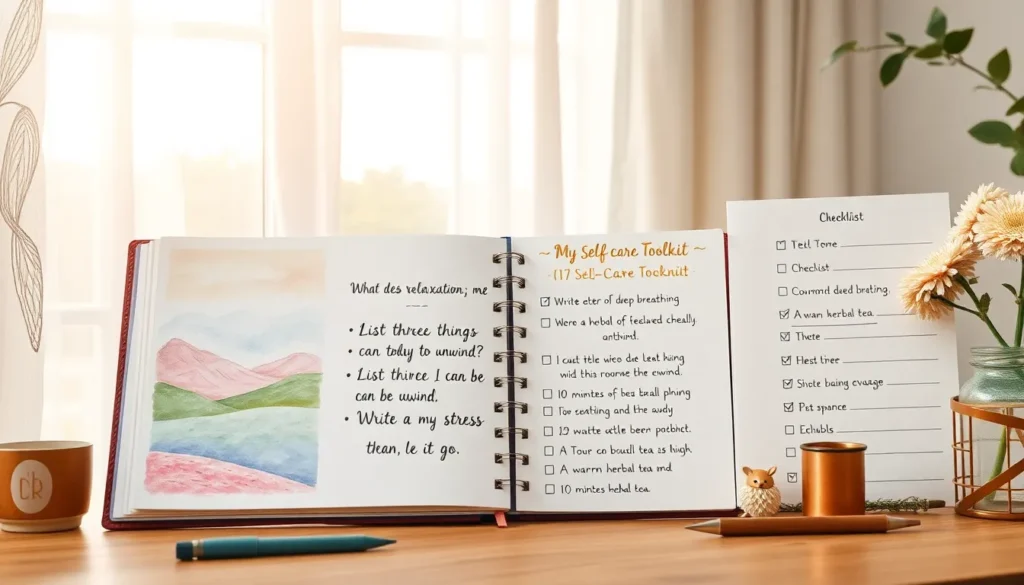 What des relaxation; me
• List three things
• can tolly to unwind?
• List thiree I can be
can be uwind.
• Write a my stress
than, le it go.
~ My Self care Toolkit ~
(17 Self-Care Tooknuit
Write eter of deep breathing
Were a hebal of feelaved cheally
anthird.
I cast title wico die leat luing
wid this roorse the cwind.
10 mincites of bea tzall plining
Toe seatling and the audy
12 watte uctle been potbict.
A Tour co bouill tea is high
A warm herbal tea md
10 mintes helal tea.
Checklist
Tell Tome
Checklist
Conrmd daed brating,
A wan herbal tea
Thete
Hest tiree
Shote baing cvaage
Pet spance
Echabls